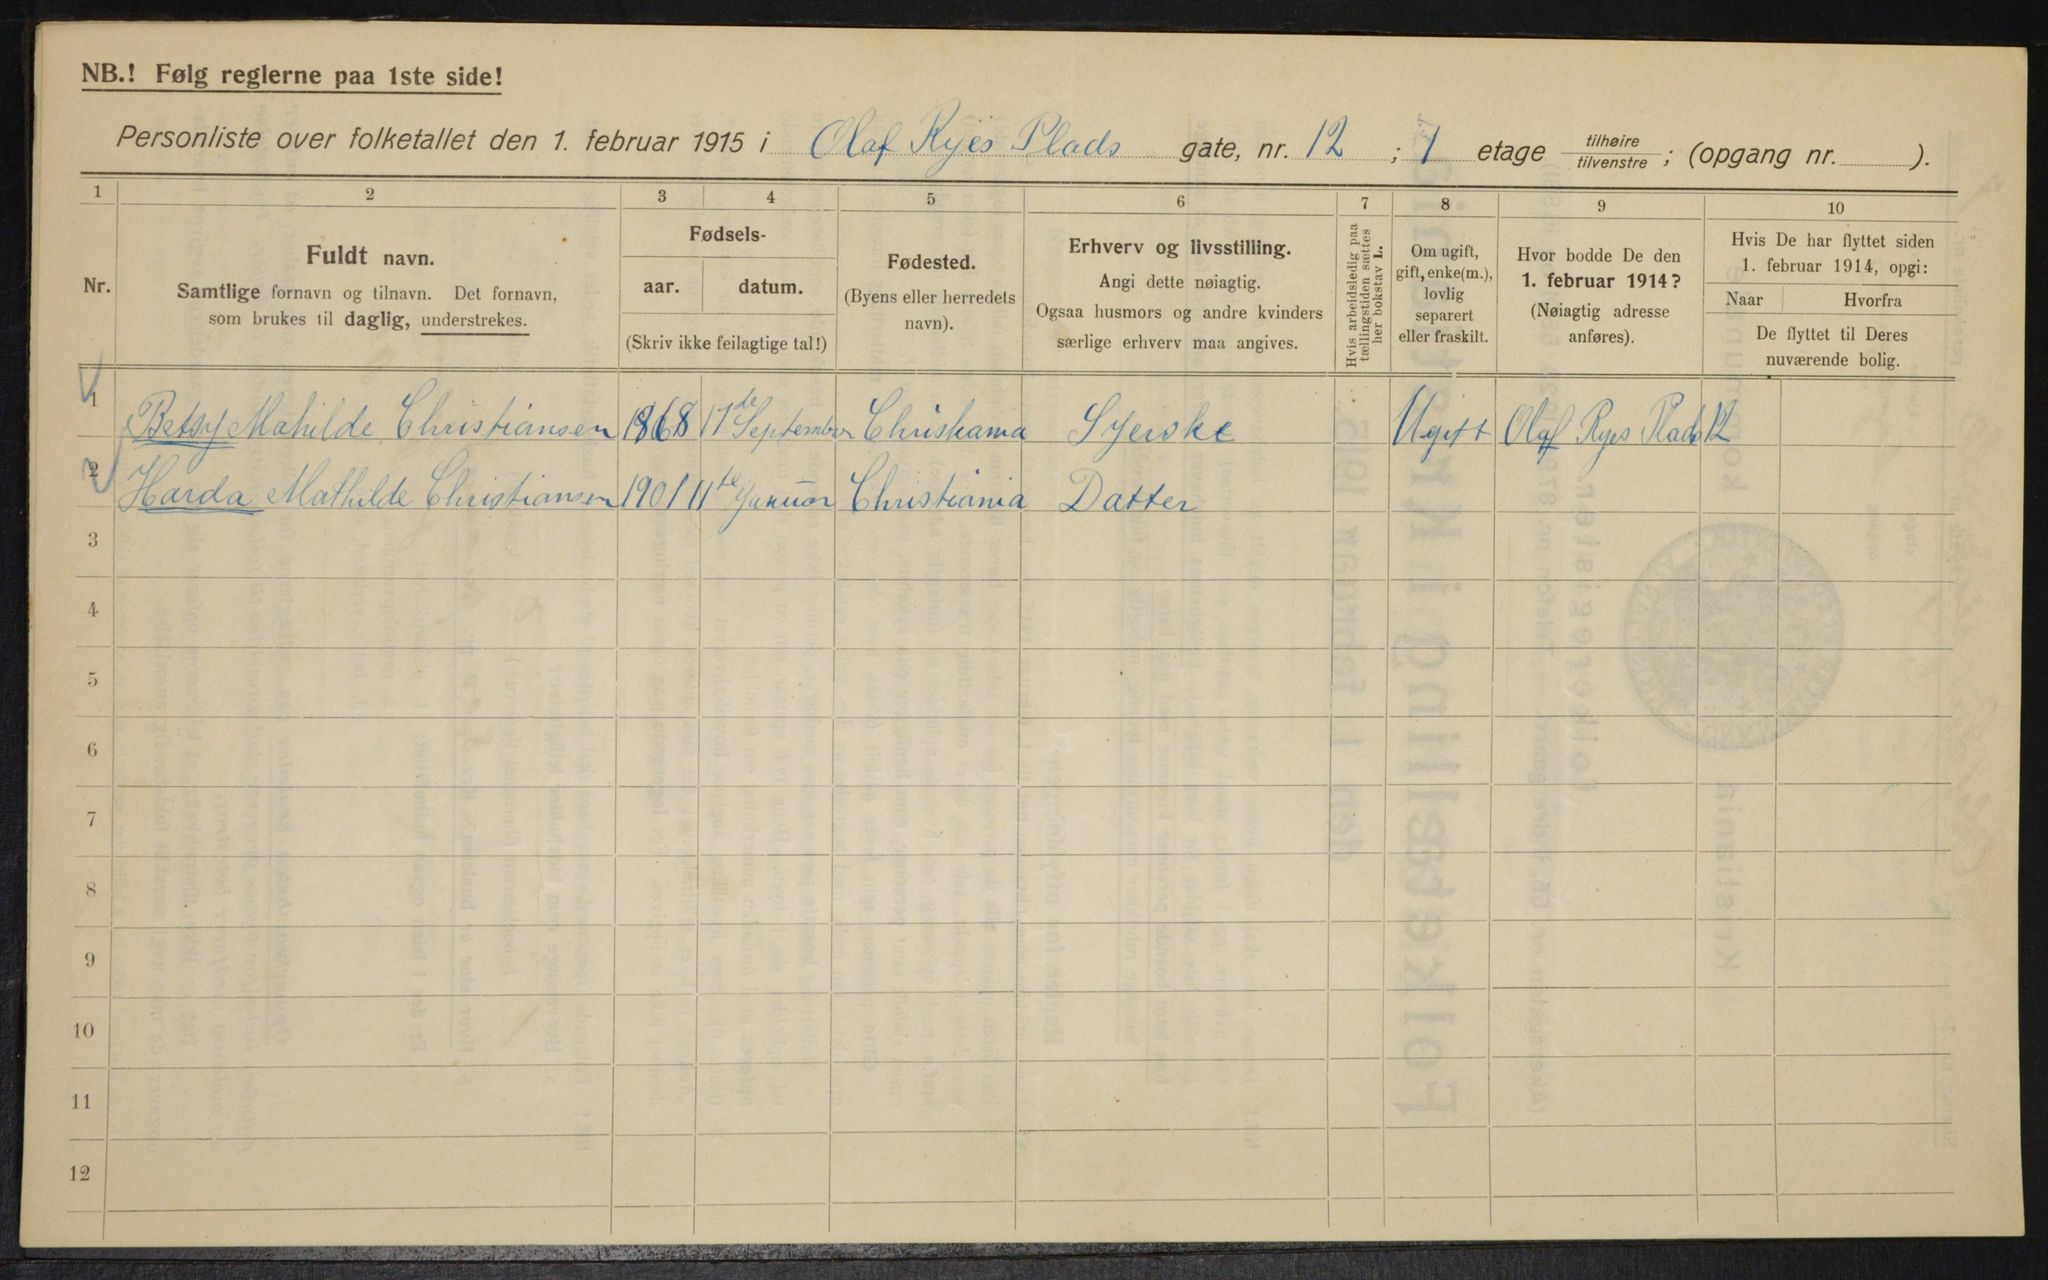 NB.! Følg reglerne paa 1ste side!
Personliste over folketallet den 1. februar 1915 i Olaf Ryes Plads gate, nr. 12 ; 1 etage tilhøire tilvenstre ; (opgang nr. ).
1 2 3 4 5 6 7 8 9 10
Nr.
Fuldt navn.
Samtlige fornavn og tilnavn. Det fornavn,
som brukes til daglig, understrekes.
Fødsels-
aar. datum.
(Skriv ikke feilagtige tal!)
Fødested.
(Byens eller herredets
navn).
Erhverv og livsstilling.
Angi dette nøiagtig.
Ogsaa husmors og andre kvinders
særlige erhverv maa angives.
Hvis arbeidsledig paa
tællingstiden sættes
her bokstav L.
Om ugift,
gift, enke(m.),
lovlig
separert
eller fraskilt.
Hvor bodde De den
1. februar 1914?
(Nøiagtig adresse
anføres).
Hvis De har flyttet siden
1. februar 1914, opgi:
Naar Hvorfra
De flyttet til Deres
nuværende bolig.
1 Betsy Mathilde Christiansen 1868 17de September Christiania Syerske Ugift Olaf Ryes Plads 12
2 Harda Mathilde Christiansen 1901 11te Januar Christiania Datter
3
4
5
6
7
8
9
10
11
12